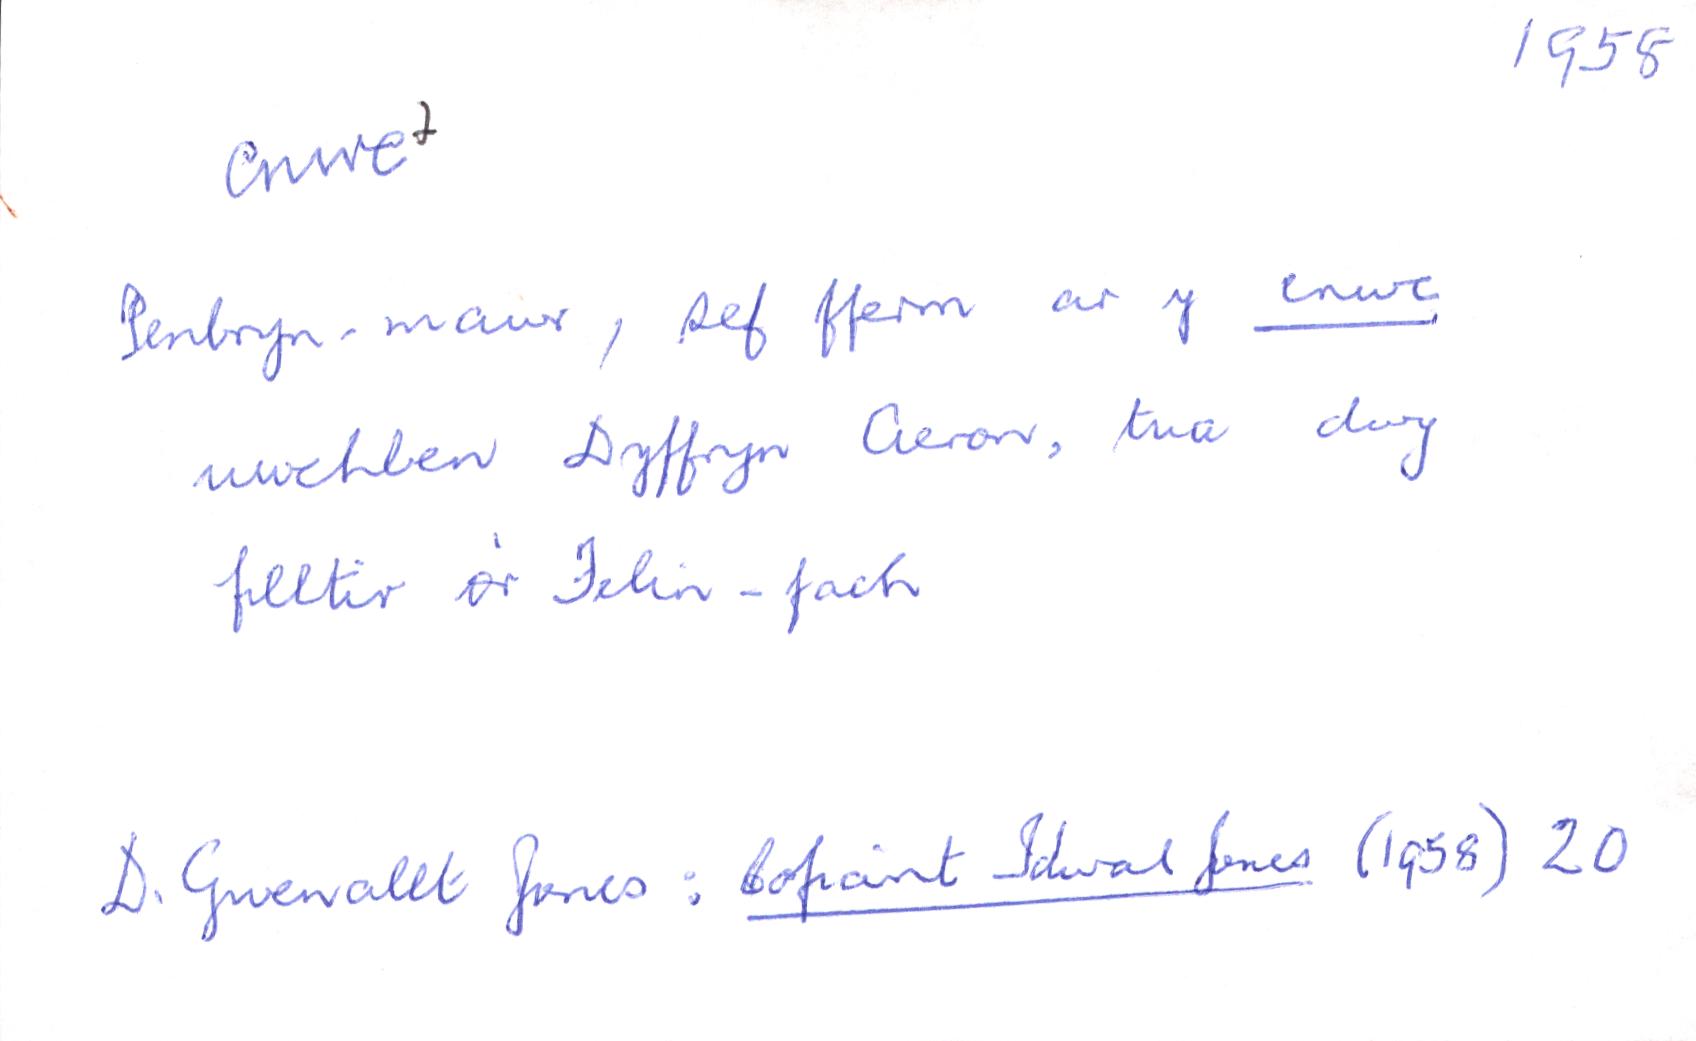 1958
cnwc²
Penbryn-mawr, sef fferm ar y cnwc
uwchben Dyffryn Aeron, tua dwy
filltir o'r Felin-fach
D. Gwenallt Jones: Cofiant Idwal Jones (1958) 20